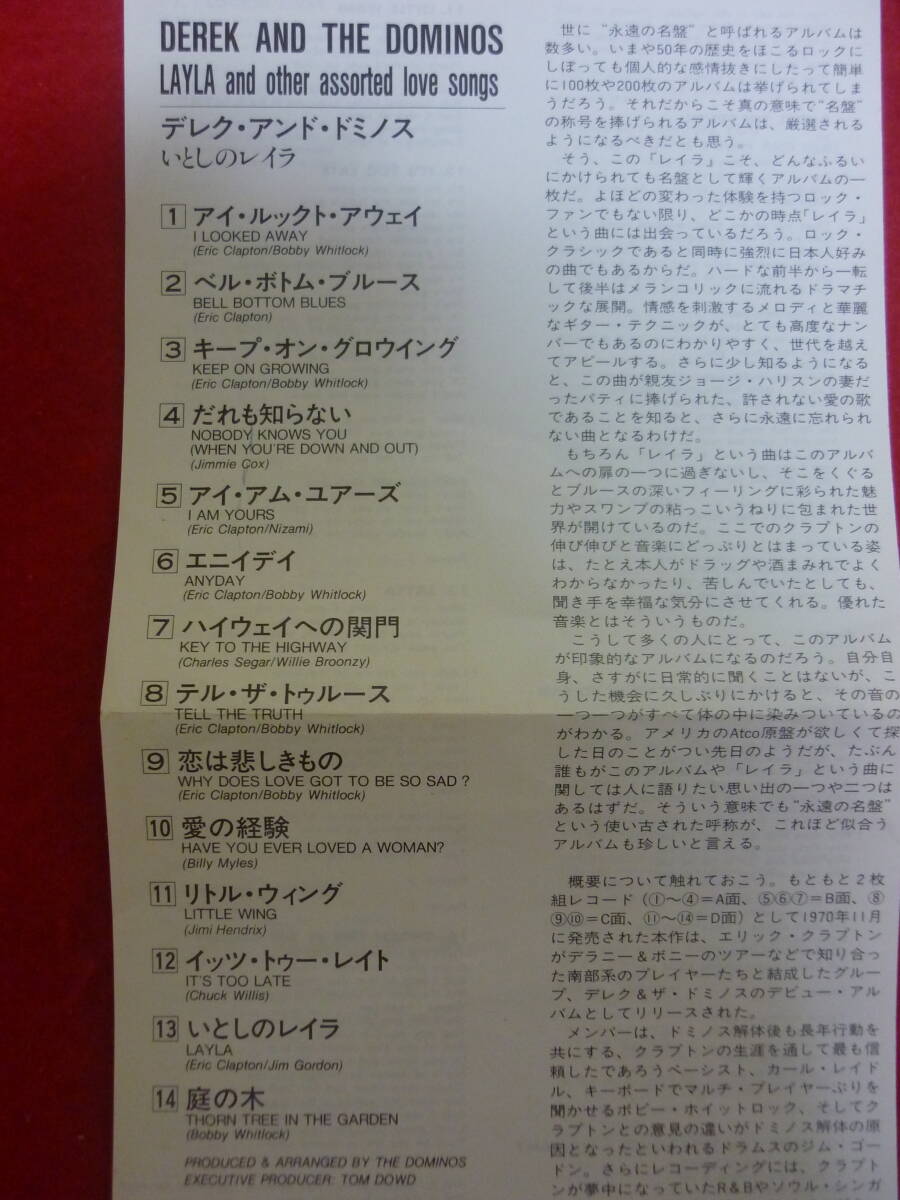 DEREK AND THE DOMINOS
LAYLA and other assorted love songs
デレク・アンド・ドミノス
いとしのレイラ
1 アイ・ルックト・アウェイ
I LOOKED AWAY
(Eric Clapton/Bobby Whitlock)
2 ベル・ボトム・ブルース
BELL BOTTOM BLUES
(Eric Clapton)
3 キープ・オン・グロウイング
KEEP ON GROWING
(Eric Clapton/Bobby Whitlock)
4 だれも知らない
NOBODY KNOWS YOU
(WHEN YOU'RE DOWN AND OUT)
(Jimmie Cox)
5 アイ・アム・ユアーズ
I AM YOURS
(Eric Clapton/Nizami)
6 エニイデイ
ANYDAY
(Eric Clapton/Bobby Whitlock)
7 ハイウェイへの関門
KEY TO THE HIGHWAY
(Charles Segar/Willie Broonzy)
8 テル・ザ・トゥルース
TELL THE TRUTH
(Eric Clapton/Bobby Whitlock)
9 恋は悲しきもの
WHY DOES LOVE GOT TO BE SO SAD ?
(Eric Clapton/Bobby Whitlock)
10 愛の経験
HAVE YOU EVER LOVED A WOMAN?
(Billy Myles)
11 リトル・ウィング
LITTLE WING
(Jimi Hendrix)
12 イッツ・トゥー・レイト
IT'S TOO LATE
(Chuck Willis)
13 いとしのレイラ
LAYLA
(Eric Clapton/Jim Gordon)
14 庭の木
THORN TREE IN THE GARDEN
(Bobby Whitlock)
PRODUCED & ARRANGED BY THE DOMINOS
EXECUTIVE PRODUCER: TOM DOWD
世に“永遠の名盤”と呼ばれるアルバムは
数多い。いまや50年の歴史をほこるロックに
しぼっても個人的な感情抜きにしたって簡単
に100枚や200枚のアルバムは挙げられてしま
うだろう。それだからこそ真の意味で“名盤”
の称号を捧げられるアルバムは、厳選される
ようになるべきだとも思う。
そう、この「レイラ」こそ、どんなふるい
にかけられても名盤として輝くアルバムの一
枚だ。よほどの変わった体験を持つロック・
ファンでもない限り、どこかの時点「レイラ」
という曲には出会っているだろう。ロック・
クラシックであると同時に強烈に日本人好み
の曲でもあるからだ。ハードな前半から一転
して後半はメランコリックに流れるドラマチ
ックな展開。情感を刺激するメロディと華麗
なギター・テクニックが、とても高度なナン
バーでもあるのにわかりやすく、世代を越え
てアピールする。さらに少し知るようになる
と、この曲が親友ジョージ・ハリスンの妻だ
ったパティに捧げられた、許されない愛の歌
であることを知ると、さらに永遠に忘れられ
ない曲となるわけだ。
もちろん「レイラ」という曲はこのアルバ
ムへの扉の一つに過ぎないし、そこをくぐる
とブルースの深いフィーリングに彩られた魅
力やスワンプの粘っこいうねりに包まれた世
界が開けているのだ。ここでのクラプトンの
伸び伸びと音楽にどっぷりとはまっている姿
は、たとえ本人がドラッグや酒まみれでよく
わからなかったり、苦しんでいたとしても、
聞き手を幸福な気分にさせてくれる。優れた
音楽とはそういうものだ。
こうして多くの人にとって、このアルバム
が印象的なアルバムになるのだろう。自分自
身、さすがに日常的に聞くことはないが、こ
うした機会に久しぶりにかけると、その音の
一つ一つがすべて体の中に染みついているの
がわかる。アメリカのAtco原盤が欲しくて探
した日のことがつい先日のようだが、たぶん
誰もがこのアルバムや「レイラ」という曲に
関しては人に語りたい思い出の一つや二つは
あるはずだ。そういう意味でも“永遠の名盤”
という使い古された呼称が、これほど似合う
アルバムも珍しいと言える。
概要について触れておこう。もともと2枚
組レコード（①〜④＝A面、⑤⑥⑦＝B面、⑧
⑨⑩＝C面、⑪〜⑭＝D面）として1970年11月
に発売された本作は、エリック・クラプトン
がデラニー＆ボニーのツアーなどで知り合っ
た南部系のプレイヤーたちと結成したグルー
プ、デレク＆ザ・ドミノスのデビュー・アル
バムとしてリリースされた。
メンバーは、ドミノス解体後も長年行動を
共にする、クラプトンの生涯を通して最も信
頼したであろうベーシスト、カール・レイド
ル、キーボードでマルチ・プレイヤーぶりを
聞かせるボビー・ホイットロック、そしてク
ラプトンとの意見の違いがドミノス解体の原
因となったといわれるドラムスのジム・ゴー
ドン。さらにレコーディングには、クラプト
ンが夢中になっていたR&Bやソウル・シンガ